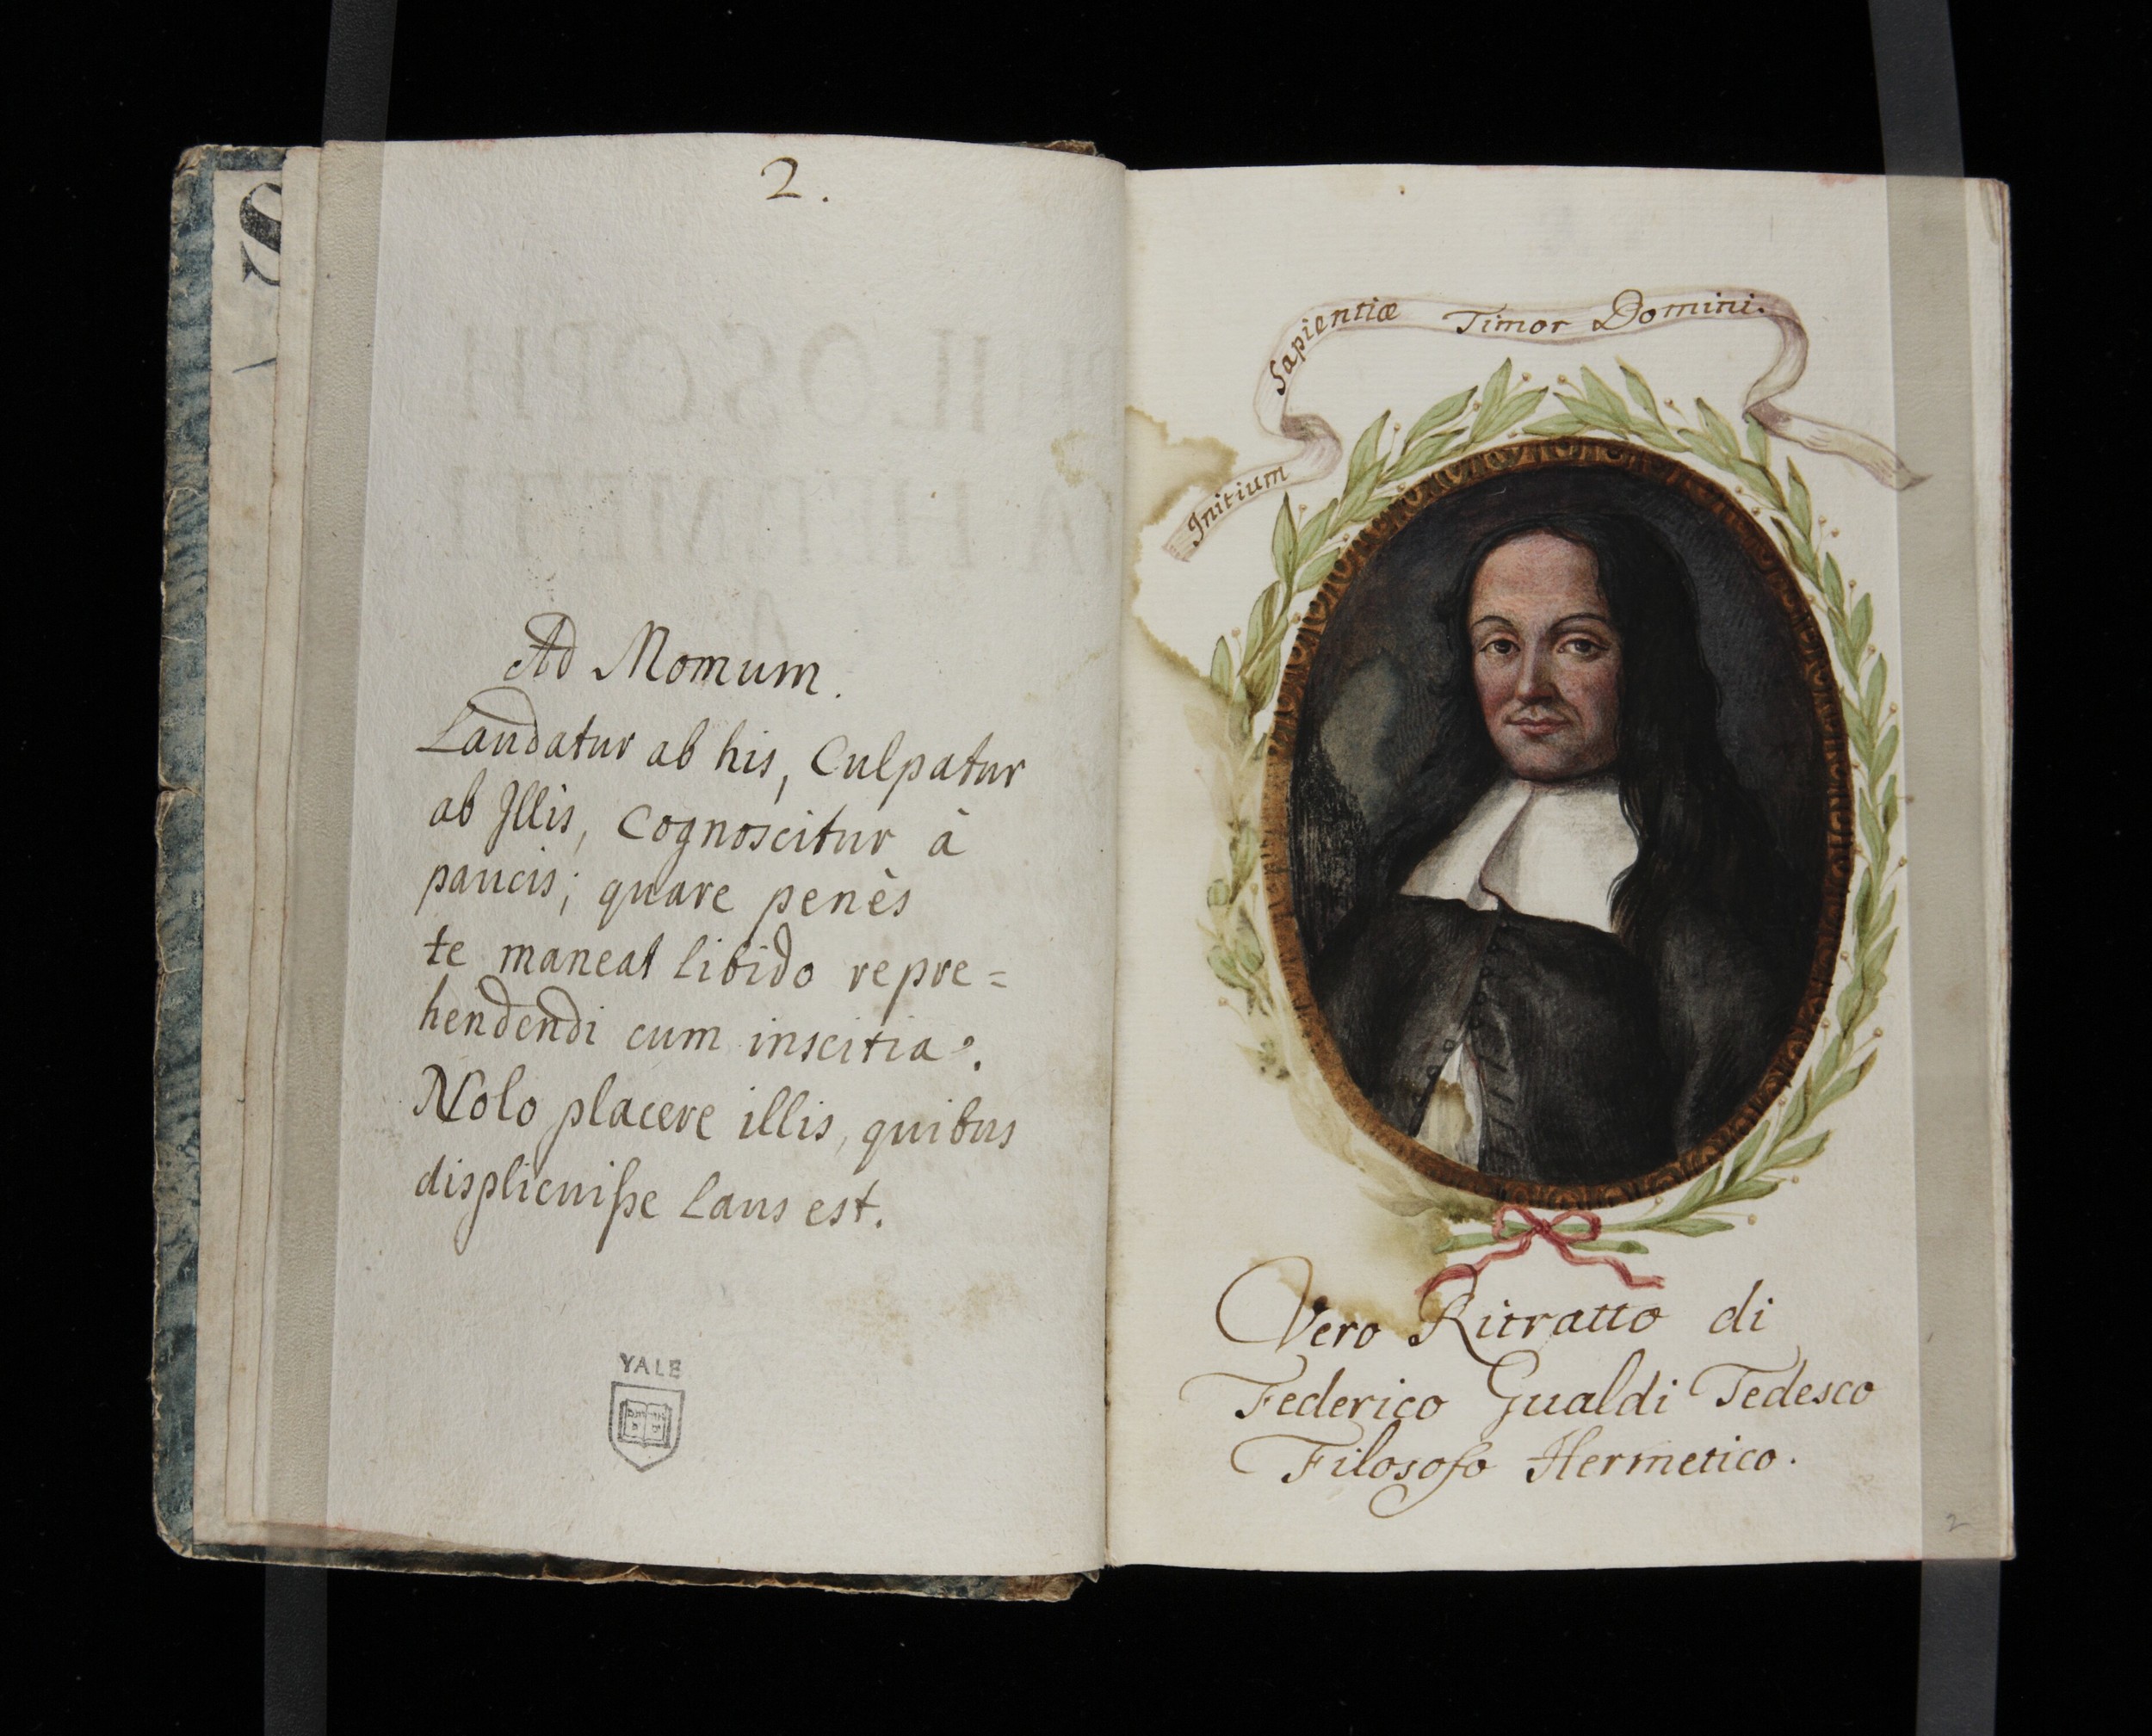 2.
Ad Momum.
Laudatur ab his, Culpatur
ab Illis, Cognoscitur à
paucis; quare penès
te maneat libido repre=
hendendi cum inscitia?.
Nolo placere illis, quibus
displicuiſse Laus est.
YALE
Initium Sapientiæ Timor Domini.
Vero Ritratto di
Federico Gualdi Tedesco
Filosofo Hermetico.
2